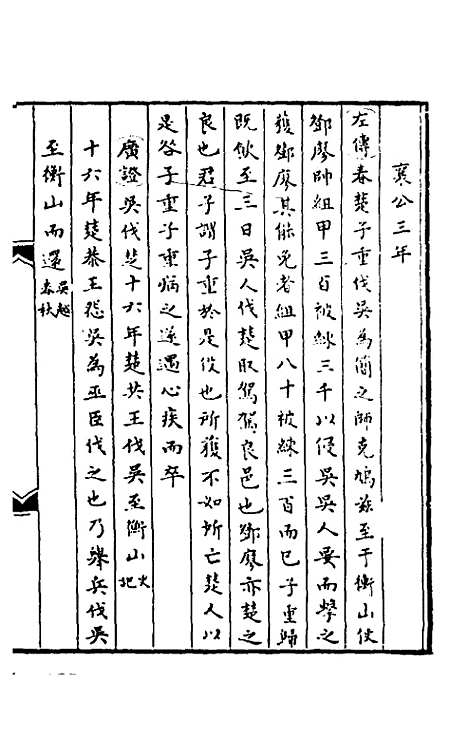 襄公三年
左傳春楚子重伐吳為簡之師克鳩茲至于衡山使
鄧廖帥組甲三百被練三千以侵吳吳人要而擊之
獲鄧廖其能免者組甲八十被練三百而已子重歸
既飲至三日吳人伐楚取駕駕良邑也鄧廖亦楚之
良也君子謂子重於是役也所獲不如所亡楚人以
是咎子重子重病之遂遇心疾而卒
廣證吳伐楚十六年楚共王伐吳至衡山史記
十六年楚恭王怨吳為巫臣伐之也乃舉兵伐吳
至衡山而還吳越春秋